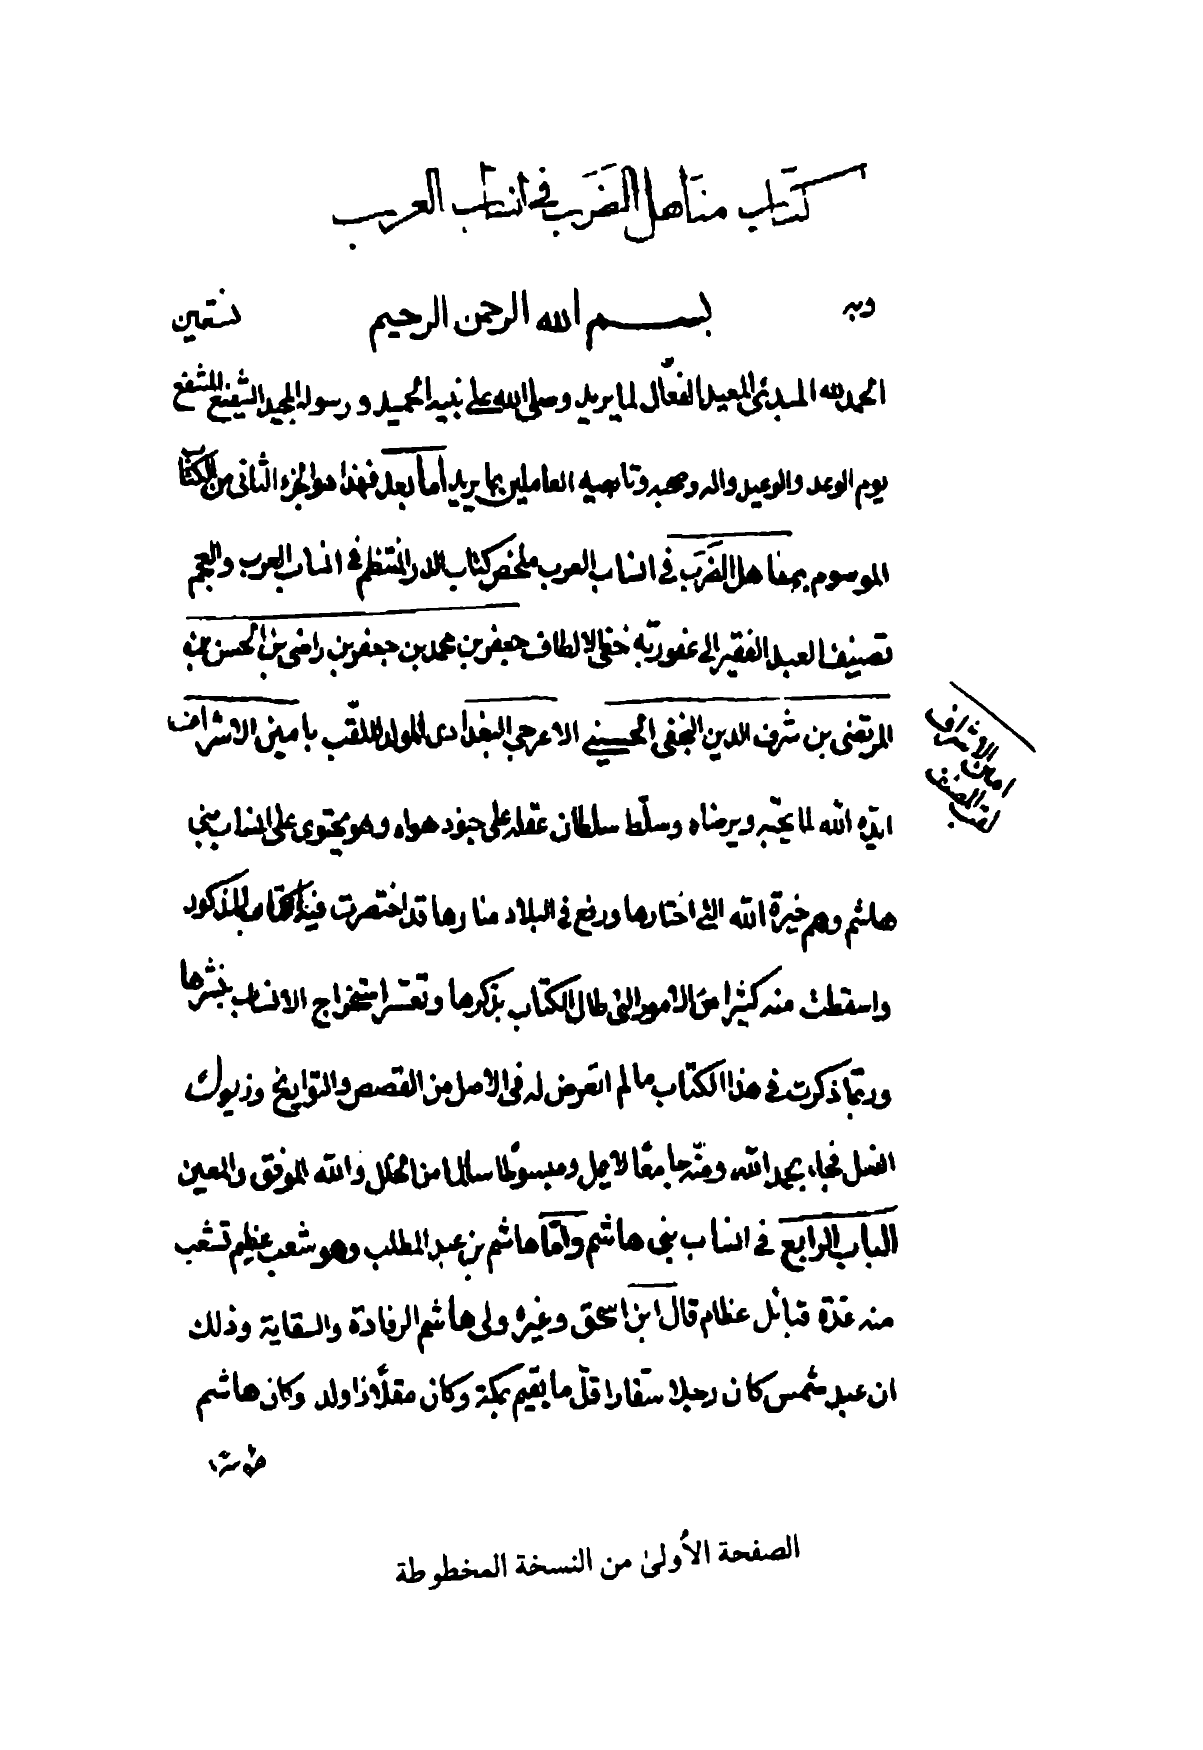 كتاب مناهل الضرب في انساب العرب
وبه بسم الله الرحمن الرحيم نستعين
الحمد لله المبدئ المعيد الفعّال لما يريد وصلى الله على نبيه الحميد ورسوله المجيد الشفيع المشفع
يوم الوعد والوعيد واله وصحبه وتابعيه العاملين بما يريد أما بعد فهذا هو الجزء الثانى من الكتاب
الموسوم بمناهل الضَرَب في انساب العرب ملخص كتاب الدر المنتظم في انساب العرب والعجم
تصنيف العبد الفقير الى عفو ربّه خفى الالطاف جعفر بن محمد بن جعفر بن راضى بن الحسن بن
المرتضى بن شرف الدين النجفى الحسيني الاعرجي البغدادى المولد الملقّب بامين الاشراف
ايّده الله لما يحبّه ويرضاه وسلّط سلطان عقله على جنود هواه وهو يحتوى على انساب بني
هاشم وهم خيرة الله التي اختارها ورفع في البلاد منارها قد اختصرت فيه الكتاب المذكور
واسقطت منه كثيرا من الامور التى طال الكتاب بذكرها وتعسّر استخراج الانساب بنشرها
وربّما ذكرت في هذا الكتاب ما لم اتعرض له فى الاصل من القصص والتواريخ وذيول
النسل فجاء بحمد الله ومنّه جامعًا لا يمل ومبسوطا سالما من الخلل والله الموفق والمعين
الباب الرابع في انساب بني هاشم وأمّا هاشم بن عبد المطلب وهو شعب عظيم تشعب
منه عدّة قبائل عظام قال ابن اسحق وغيره ولى هاشم الرفادة والسقاية وذلك
ان عبد شمس كان رجلا سفّارا قلّ ما يقيم بمكة وكان مقلّا ذا ولد وكان هاشم
امين الاشراف
لقب المصنف
الصفحة الأولىٰ من النسخة المخطوطة